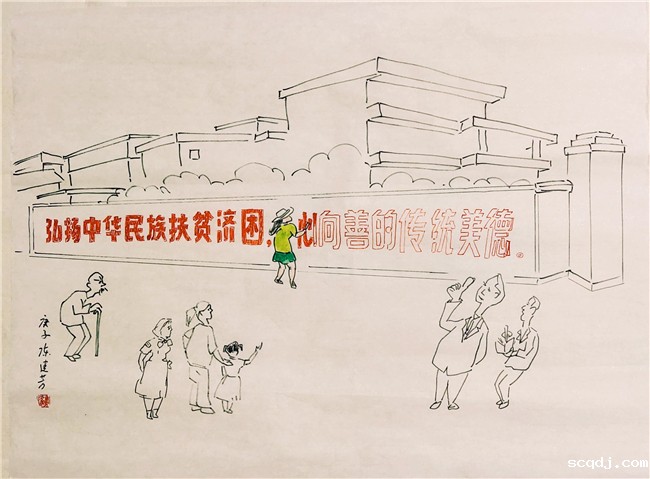 弘扬中华民族扶贫济困,向善的传统美德。
庚子陈建芳
scqdj.com